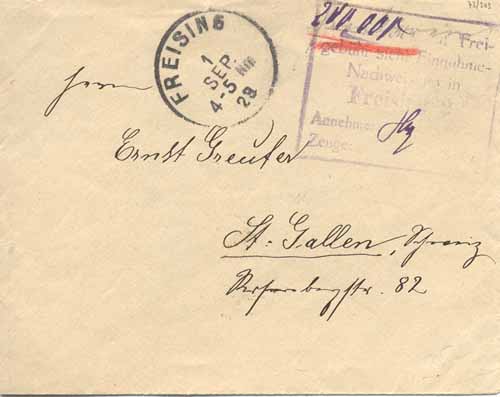 72/303
FREISING
1
SEP.
4-5 Nm
23
200,000
in Frei-
Gebühr siehe Einnahme-
Nachweisung in
Freising
Annehmer:
Zeuge:
Herrn
Ernst Greuter
St. Gallen, Schweiz
82